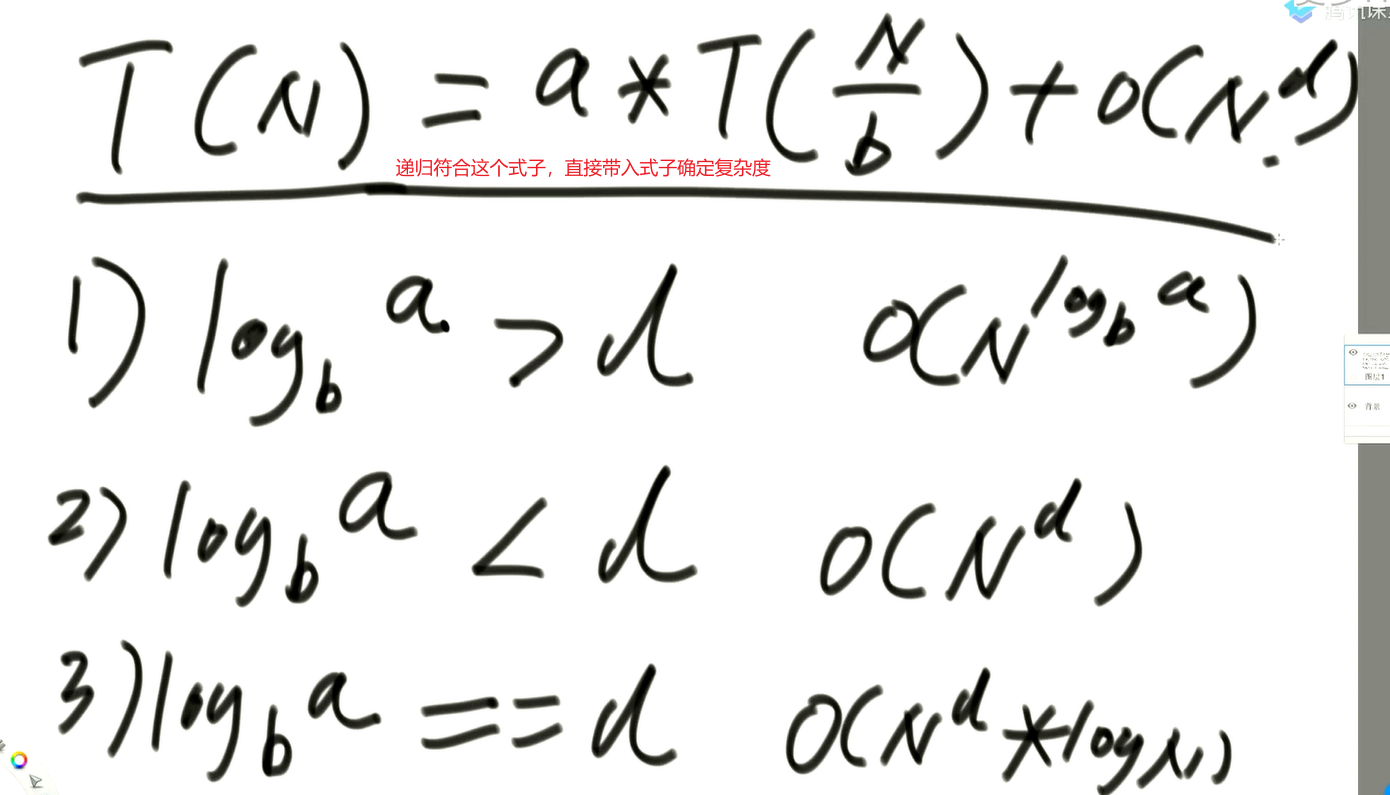 腾讯课
T(N) = a * T(N/b) + O(N^d)
递归符合这个式子，直接带入式子确定复杂度
1) log_b a > d O(N^(log_b a))
图层1
背景
2) log_b a < d O(N^d)
3) log_b a == d O(N^d * logN)